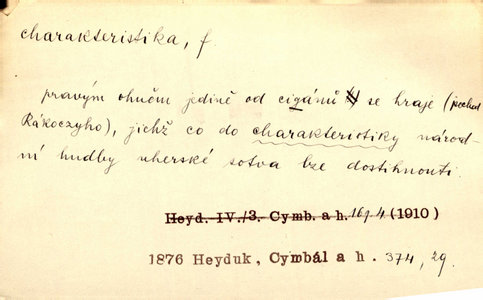 charakteristika, f.
pravým ohněm jedině od cigánů se hraje (pochod
Rákoczyho), jichž co do charakteristiky národ-
ní hudby uherské sotva lze dostihnouti.
Heyd. IV./3. Cymb. a h. 169.4 (1910)
1876 Heyduk, Cymbál a h. 374, 29.